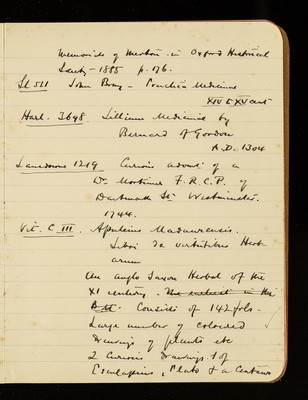 Memorials of Merton in Oxford Historical
Society - 1885 p. 176.
Sl 521 John Bray - Practica Medicinae
XIV & XV cent
Harl. 3698 Lillium Medicinae by
Bernard of Gordon
A.D. 1304
Lansdowne 1219 Curious advert of a
Dr Mortimer F.R.C.P. of
Dartmouth St Westminster.
1744.
Vit. C III. Apuleius Madaurensis.
Libri de virtutibus Herb
arum
An Anglo Saxon Herbal of the
XI century. The earliest in the
B.M. Consists of 142 fols.
Large number of coloured
Drawings of plants etc
2 Curious Drawings 1 of
Esculapius, Plato & a Centaur